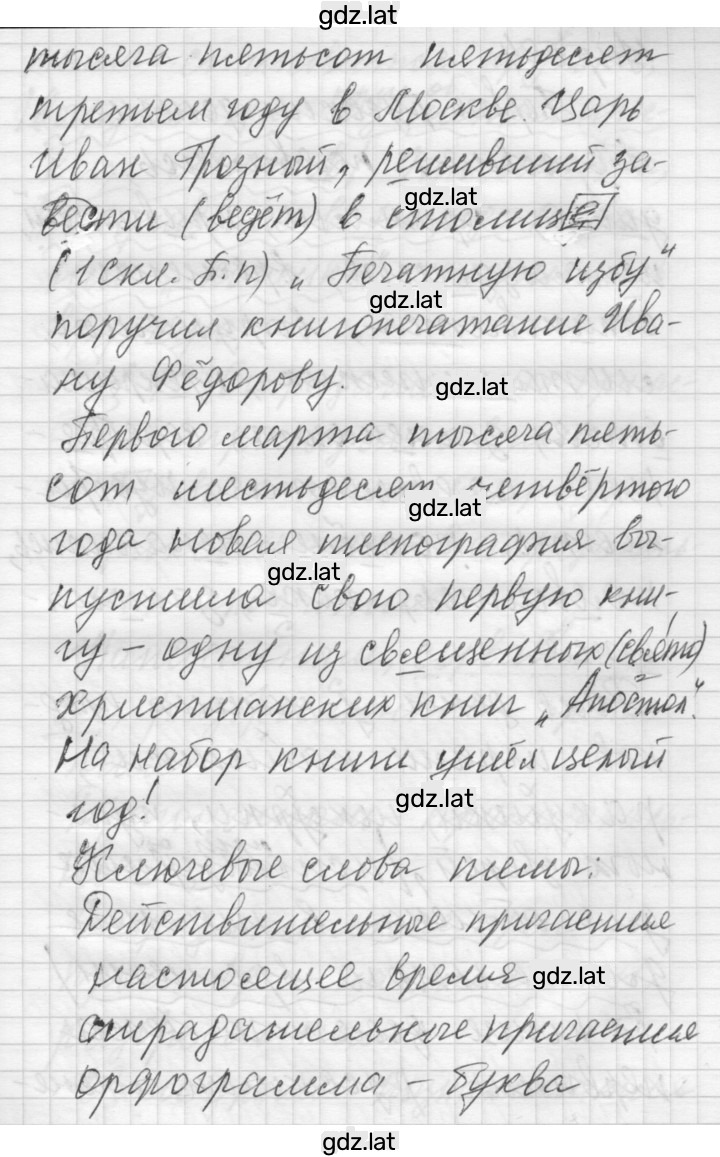 gdz.lat
тысяча пятьсот пятьдесят
третьем году в Москве. Царь
Иван Грозный, решивший за-
gdz.lat
вести (ведёт) в столице
(1 скл. П.п) „Печатную избу"
gdz.lat
поручил книгопечатание Ива-
ну Фёдорову.
gdz.lat
Первого марта тысяча пять-
сот шестьдесят четвёртого
gdz.lat
года новая типография вы-
gdz.lat
пустила свою первую кни-
гу - одну из священных (свято)
христианских книг „Апостол".
На набор книги ушёл целый
год!
gdz.lat
Ключевые слова темы:
Действительные причастия
настоящее время
gdz.lat
страдательные причастия
орфограмма - буква
gdz.lat